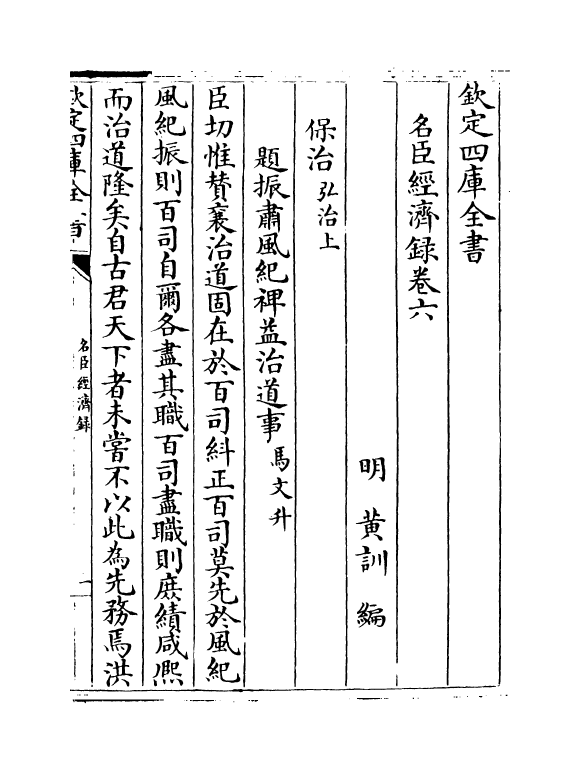 欽定四庫全書
名臣經濟録卷六
明 黄訓 編
保治弘治上
題振肅風紀禆益治道事馬文升
臣切惟賛襄治道固在於百司糾正百司莫先於風紀
風紀振則百司自爾各盡其職百司盡職則庶績咸熈
而治道隆矣自古君天下者未嘗不以此為先務焉洪
欽定四庫全書
名臣經濟録
一